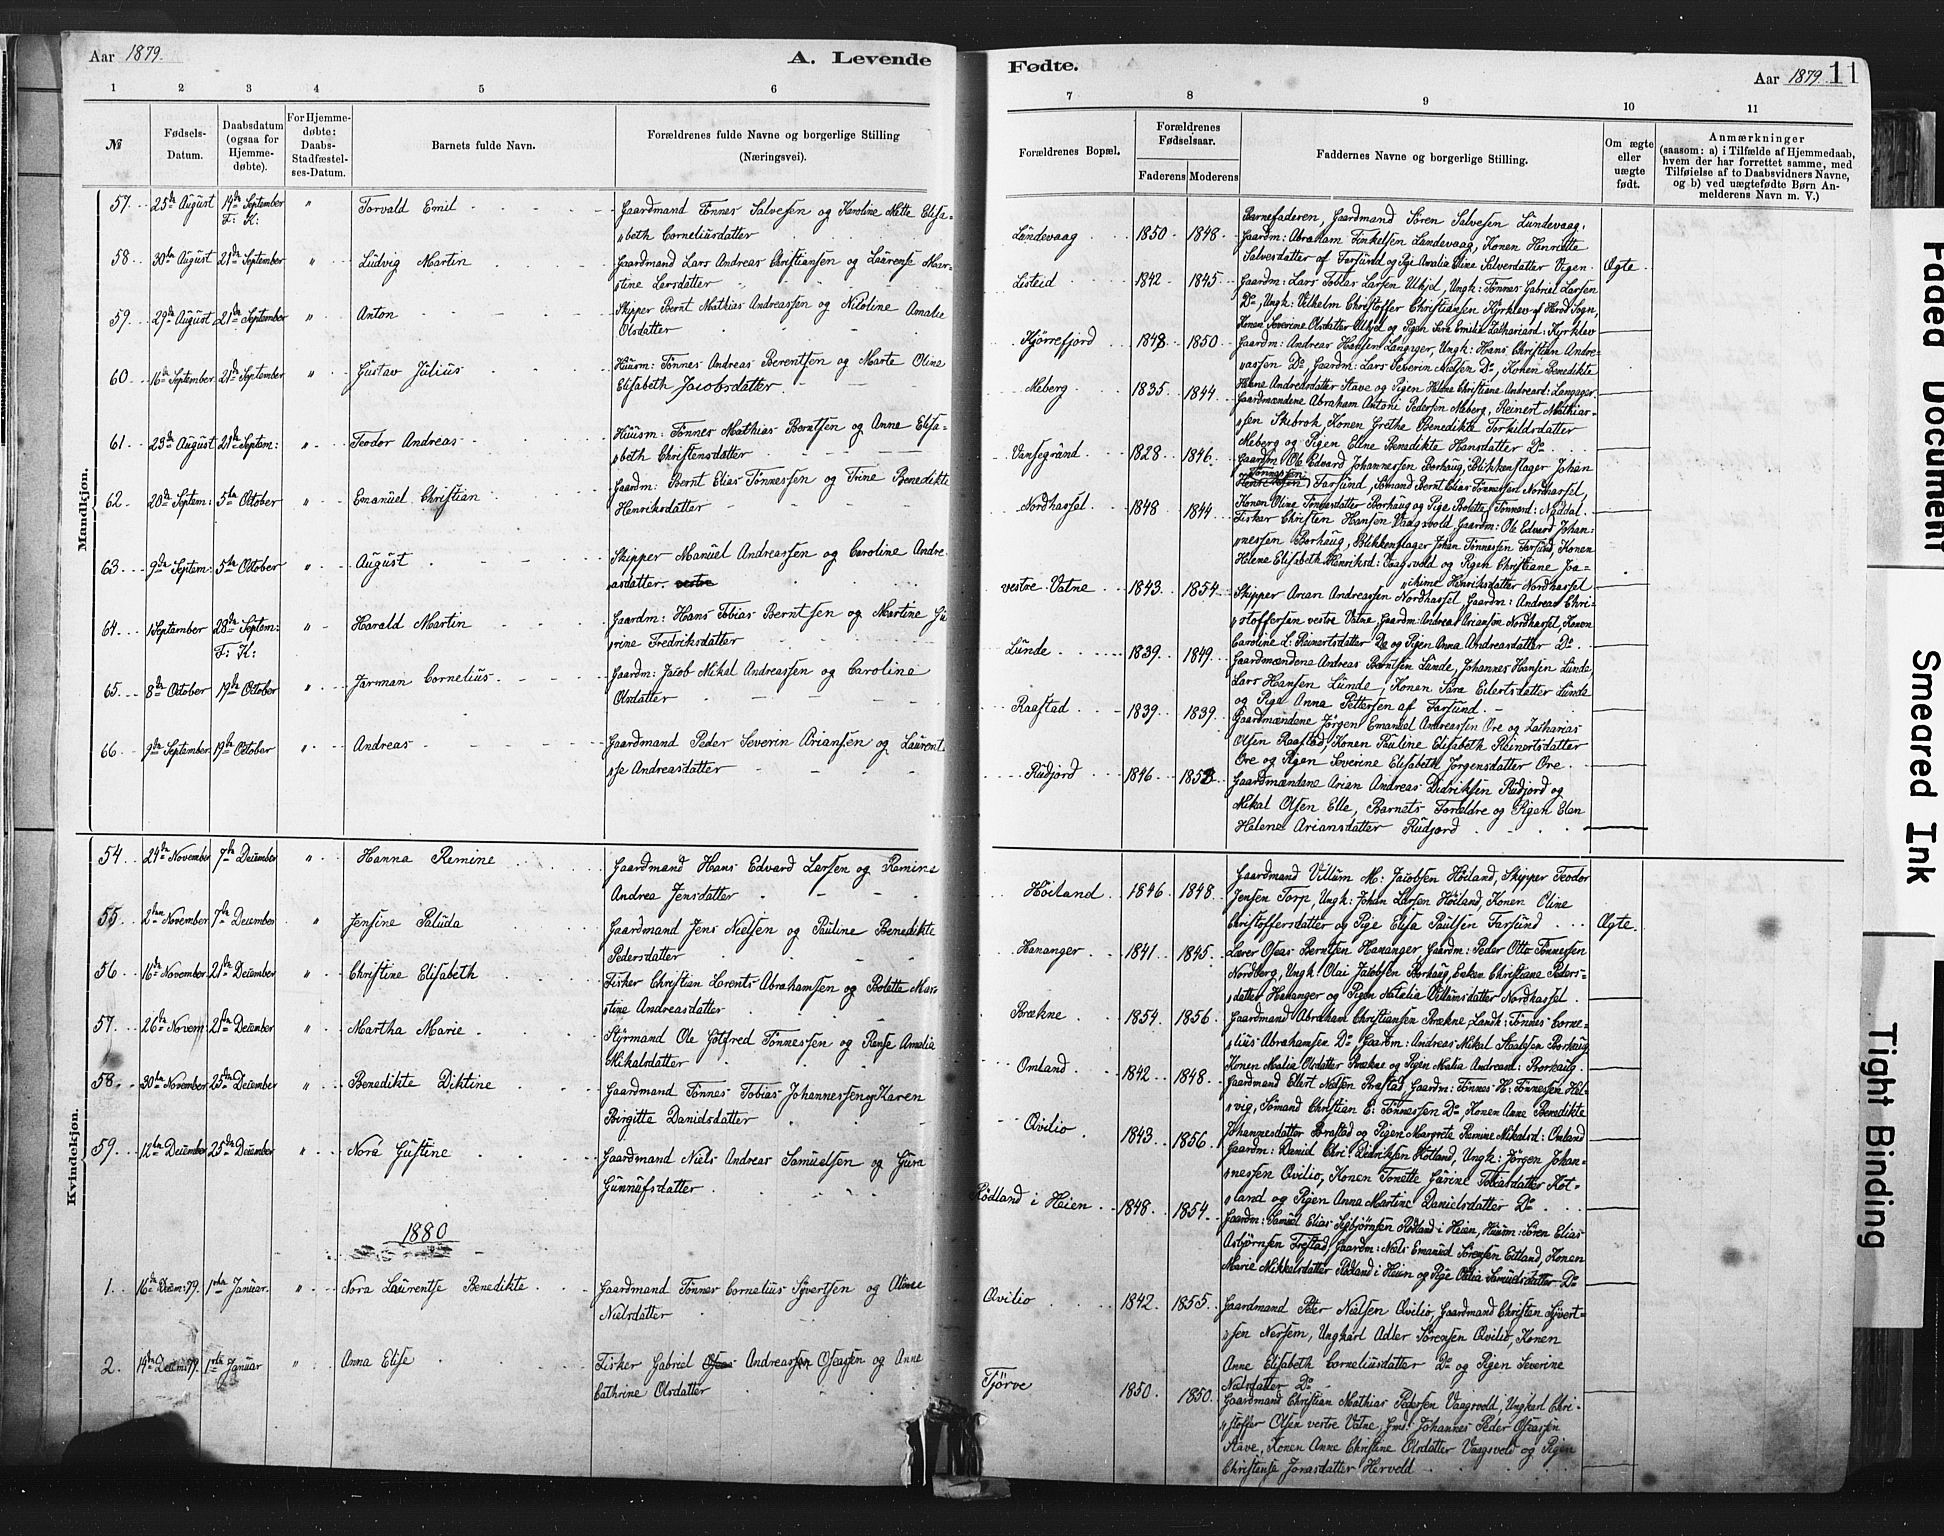 Aar 1879.
A. Levende
1 2 3 4 5 6
№
Fødsels-
Datum.
Daabsdatum
(ogsaa for
Hjemme-
døbte).
For Hjemme-
døbte:
Daabs-
Stadfæstel-
ses-Datum.
Barnets fulde Navn.
Forældrenes fulde Navne og borgerlige Stilling
(Næringsvei).
Mandkjøn.
57. 25de August 14de September " Torvald Emil Gaardmand Tönnes Salvesen og Karoline Mette Elisa-
F: K: beth Corneliusdatter
58 30te August 21de September " Ludvig Martin Gaardmand Lars Andreas Christiansen og Laurense Mar-
tine Larsdatter
59. 29de August 21de September " Anton Skipper Bernt Mathias Andreassen og Nicoline Amalie
Olsdatter
60 16de September 21de September " Gustav Julius Huusm: Tönnes Andreas Berentsen og Marte Oline
Elisabeth Jacobsdatter
61. 23de August 21de Septem: " Teodor Andreas Huusm: Tönnes Mathias Berntsen og Anne Elisa-
beth Christensdatter
62. 20de Septem: 5te October " Emanuel Christian Gaardm: Bernt Elias Tönnessen og Trine Benedikte
Henriksdatter
63. 9de Septem: 5te October " August Skipper Manuel Andreassen og Caroline Andre-
asdatter. vestre
64 1 September 28de Septem: " Harald Martin Gaardm: Hans Tobias Berntsen og Martine Gu
F: K: rine Fredriksdatter
65. 8de October 19de October " Jarman Cornelius Gaardm: Jacob Mikal Andreassen og Caroline
Olsdatter
66 9de September 19de October " Andreas Gaardmand Peder Severin Ariansen og Laurent-
se Andreasdatter
Kvindekjøn.
54 24de November 7de December " Hanna Remine Gaardmand Hans Edvard Larsen og Remine
Andrea Jensdatter
55 2den November 7de December " Jensine Paluda Gaardmand Jens Nielsen og Pauline Benedikte
Pedersdatter
56 16de November 21de December " Christine Elisabeth Fisker Christian Lorents Abrahamsen og Boletta Mar-
tine Andreasdatter
57. 26de Novem 21de December " Martha Marie Styrmand Ole Gotfred Tönnessen og Rense Amalia
Mikalsdatter
58. 30te November 25de December " Benedikte Diktine Gaardmand Tönnes Tobias Johannessen og Karen
Birgitta Danielsdatter
59. 12te December 25de December " Nora Gustine Gaardmand Niels Andreas Samuelsen og Gura
Gunnufsdatter
1880
1. 16de Decem: 79. 1ste Januar. " Nora Laurentse Benedikte Gaardmand Tönnes Cornelius Sjvertsen og Oline
Nielsdatter
2. 14de Decem: 79. 1ste Januar " Anna Elise Fisker Gabriel Oseas Andreassen Oseassen og Anne
Cathrine Olsdatter
Fødte.
Aar 1879. 11
7 8 9 10 11
Forældrenes Bopæl.
Forældrenes
Fødselsaar.
Faderens Moderens
Faddernes Navne og borgerlige Stilling.
Om ægte
eller
uægte
født.
Anmærkninger
(saasom: a) i Tilfælde af Hjemmedaab,
hvem der har forrettet samme, med
Tilføielse af to Daabsvidners Navne,
og b) ved uægtefødte Børn An-
melderens Navn m. V.)
Barnefaderen, Gaardmand Sören Salvesen Lundevaag,
Lundevaag 1850 1848 Gaardm: Abraham Tinkelsen Lundevaag, Konen Henriette
Salvesdatter af Farsund og Pige Amalia Eline Salvesdatter Vigen. Ægte.
Listeid 1842 1845 Gaardm: Lars Tobias Larsen Ulhjel, Ungk: Tönnes Gabriel Larsen
Do, Ungk: Vilhelm Christoffer Christiansen Kyrklev af Herod Sogn,
Konen Severine Olsdatter Ulhjel og Pigen Sara Emilie Zachariasd: Kyrklev
Kjörrefjord 1848 1850 Gaardm: Andreas Hansen Langager, Ungk: Hans Christian Andre-
assen Do, Gaardm: Lars Severin Nielsen Do, Konen Benedikte
Helene Andreasdatter Stave og Pigen Helene Christiane Andreasd: Langager.
Meberg 1835 1844 Gaardmændene Abraham Antoni Pedersen Meberg, Reinert Mathias-
sen Skibrok, Konen Grethe Benedikte Torkildsdatter
Meberg og Pigen Eline Benedikte Hansdatter Do.
Vansegrund 1828 1846. Gaardm: Ole Edvard Johannessen Borhaug, Blikkenslager Johan
Tönnessen
Henriksen Farsund, Sömand Bernt Elias Tönnessen Nordhassel,
Konen Oline Tönnesdatter Borhaug og Pige Bolette Tönnesd: Naddal.
Nordhassel 1848 1844 Fisker Christen Hansen Vaagsvold, Gaardm: Ole Edvard Johan-
nessen Borhaug, Blikkenslager Johan Tönnessen Farsund, Konen
Helene Elisabeth Henriksd: Vaagsvold og Pigen Christiane Jo-
akime Henriksdatter Nordhassel
vestre Vatne 1843. 1854 Skipper Arian Andreassen Nordhassel, Gaardm: Andreas Chri-
stoffersen vestre Vatne, Gaardm: Andreas Ariansen Nordhassel, Konen
Caroline L: Reinertsdatter Do og Pigen Anna Andreasdatter Do.
Lunde 1839. 1849. Gaardmændene Andreas Berntsen Lunde, Johannes Hansen Lunde,
Lars Hansen Lunde, Konen Sara Eilertsdatter Lunde
og Pige Anna Pettersen af Farsund.
Raastad 1839 1839. Gaardmændene Jörgen Emanuel Andreassen Ore og Zacharias
Olsen Raastad, Konen Pauline Elisabeth Reinertsdatter
Ore og Pigen Severine Elisabeth Jörgensdatter Ore.
Rudjord 1846 1853 Gaardmændene Arian Andreas Didriksen Rudjord og
Mikal Olsen Elle, Barnets Forældre og Pigen Elen
Helene Ariansdatter Rudjord
Gaardmand Villum M: Jacobsen Höiland, Skipper Teodor
Höiland 1846 1848. Jensen Torp, Ungk: Johan Larsen Höiland, Konen Oline
Christoffersdatter og Pige Elisa Paulsen Farsund Ægte.
Hananger 1841 1845. Lærer Oseas Berntsen Hananger, Gaardm: Peder Otto Tönnessen
Nordberg, Ungk: Olai Jacobsen Borhaug, Enken Christiane Peders-
datter Hananger og Pigen Natalia Villumsdatter Nordhassel.
Brækne 1854. 1856. Gaardmand Abraham Christiansen Brækne, Landh: Tönnes Corne-
lius Abrahamsen Do, Gaardm: Andreas Mikal Staalesen Borhaug
Konen Malia Olsdatter Brækne og Pigen Malia Andreasd: Borhaug.
Omland 1842 1848. Gaardmand Ellert Nielsen Brastad, Gaardm: Tönnes H: Tönnessen Hel-
vig, Sömand Christian E: Tönnessen Do, Konen Anne Benedikte
Johannesdatter Brastad og Pigen Margrete Remine Mikalsd: Omland
Qvilio 1843. 1856. Gaardm: Daniel Chri: Didriksen Kotland, Ungk: Jörgen Johan-
nessen Qvilio, Konen Tonette Gurine Tobiasdatter Kot-
land og Pigen Anna Martine Danielsdatter Do
Rödland i Heien 1848. 1854. Gaardm: Samuel Elias Sigbjörnsen Rödland i Heien, Huusm: Sören Elias
Asbjörnsen Frestad, Gaardm: Niels Emanuel Sörensen Eitland, Konen
Marie Mikkalsdatter Rödland i Heien og Pige Oselia Samuelsdatter Do
Qvilio 1842. 1855. Gaardmand Peter Nielsen Qvilio, Gaardmand Christen Sjvert-
sen Nersem, Ungkarl Adler Sörensen Qvilio, Konen
Anne Elisabeth Corneliusdatter Do og Pigen Severine
Nielsdatter Do
Tjörve 1850. 1850. Gaardmand Christian Mathias Pedersen Vaagsvold, Ungkarl Chri-
stoffer Olsen vestre Vatne, Gmd: Johannes Peder Oseassen
Stave, Konen Anne Christine Olsdatter Vaagsvold og Pigen
Christense Jonasdatter Hervold
Faded Document
Smeared Ink
Tight Binding